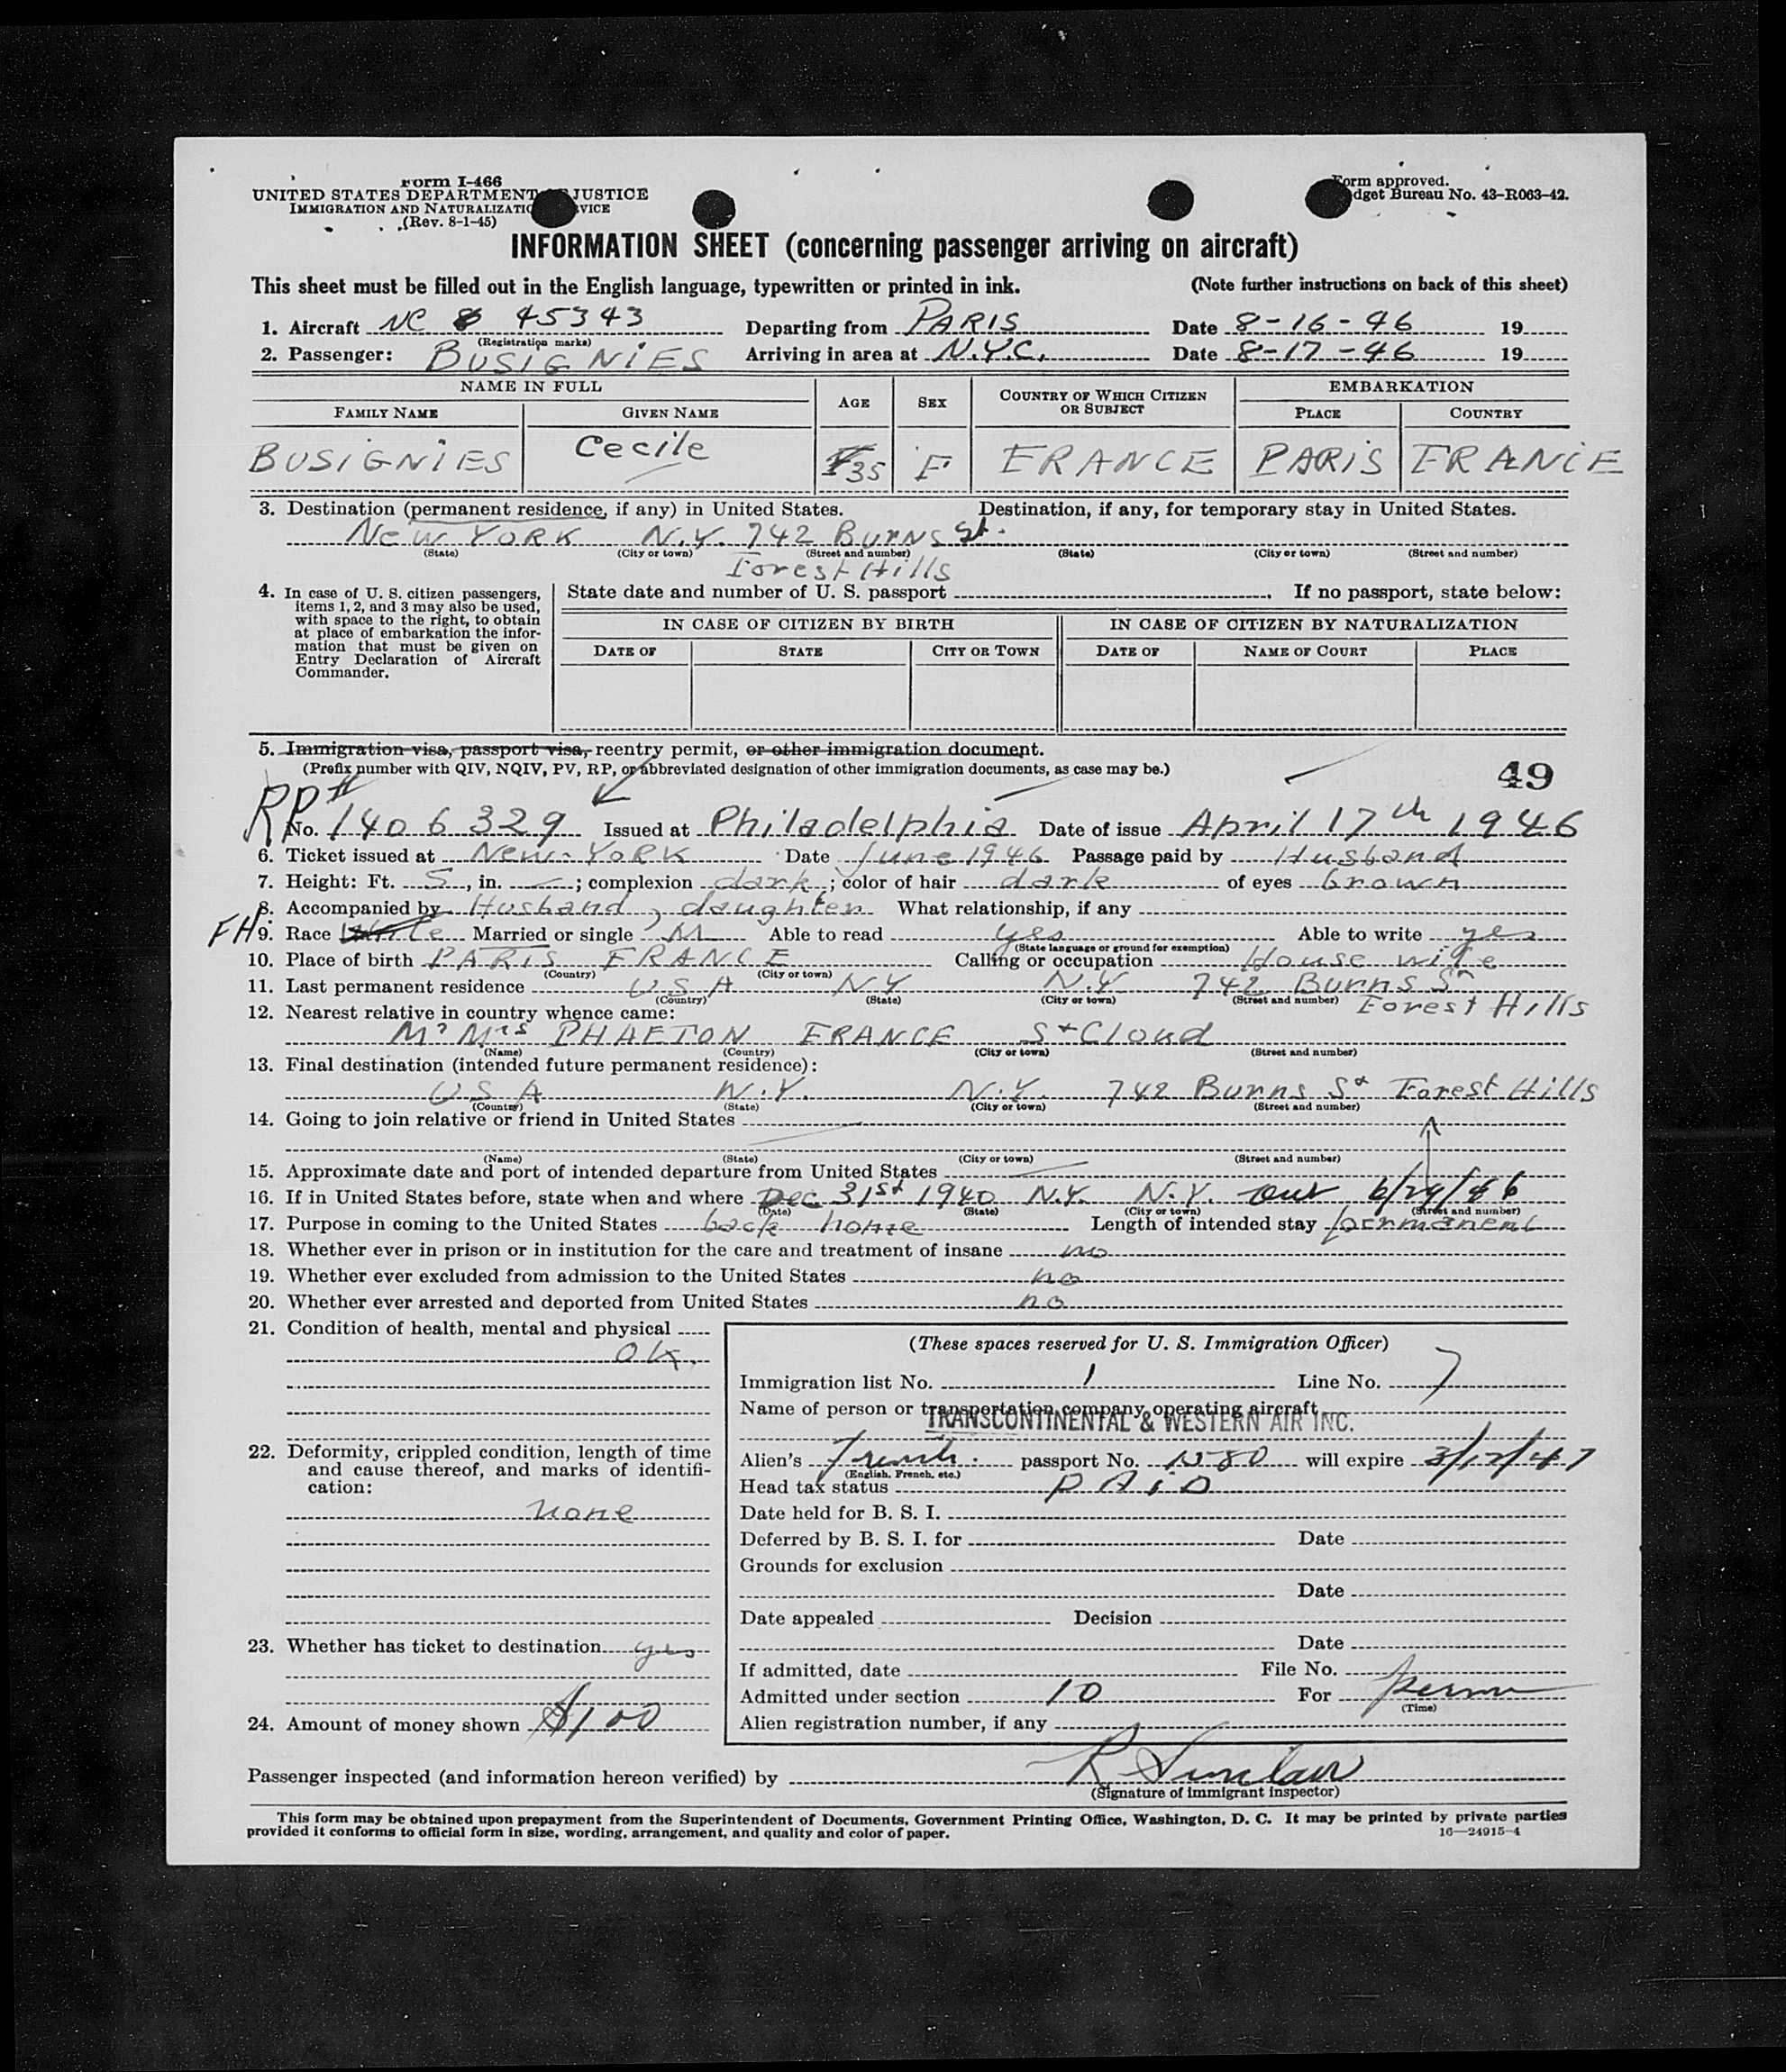 Form I-466
UNITED STATES DEPARTMENT JUSTICE
IMMIGRATION AND NATURALIZATIO VICE
(Rev. 8-1-45)
Form approved.
dget Bureau No. 43-R063-42.
INFORMATION SHEET (concerning passenger arriving on aircraft)
This sheet must be filled out in the English language, typewritten or printed in ink. (Note further instructions on back of this sheet)
1. Aircraft NC 45343 Departing from PARIS Date 8-16-46 19
(Registration marks)
2. Passenger: BUSIGNIES Arriving in area at N.Y.C. Date 8-17-46 19
NAME IN FULL AGE SEX COUNTRY OF WHICH CITIZEN OR SUBJECT EMBARKATION
FAMILY NAME GIVEN NAME PLACE COUNTRY
BUSIGNIES Cecile 35 F FRANCE PARIS FRANCE
3. Destination (permanent residence, if any) in United States. Destination, if any, for temporary stay in United States.
NEW YORK N.Y. 742 BURNS St.
(State) (City or town) (Street and number) (State) (City or town) (Street and number)
Forest Hills
4. In case of U. S. citizen passengers, items 1, 2, and 3 may also be used, with space to the right, to obtain at place of embarkation the information that must be given on Entry Declaration of Aircraft Commander.
State date and number of U. S. passport . If no passport, state below:
IN CASE OF CITIZEN BY BIRTH IN CASE OF CITIZEN BY NATURALIZATION
DATE OF STATE CITY OR TOWN DATE OF NAME OF COURT PLACE
5. Immigration visa, passport visa, reentry permit, or other immigration document.
(Prefix number with QIV, NQIV, PV, RP, or abbreviated designation of other immigration documents, as case may be.)
49
RP#
No. 1406329 Issued at Philadelphia Date of issue April 17th 1946
6. Ticket issued at New-York Date June 1946 Passage paid by Husband
7. Height: Ft. 5, in. —; complexion dark; color of hair dark of eyes brown
8. Accompanied by Husband, daughter What relationship, if any
FH 9. Race White Married or single M Able to read yes Able to write yes
(State language or ground for exemption)
10. Place of birth PARIS FRANCE Calling or occupation House wife
(Country) (City or town)
11. Last permanent residence USA NY N.Y 742 Burns St
(Country) (State) (City or town) (Street and number)
Forest Hills
12. Nearest relative in country whence came:
Mr Mrs PHAETON FRANCE St Cloud
(Name) (Country) (City or town) (Street and number)
13. Final destination (intended future permanent residence):
USA N.Y. N.Y. 742 Burns St Forest Hills
(Country) (State) (City or town) (Street and number)
14. Going to join relative or friend in United States
(Name) (State) (City or town) (Street and number)
15. Approximate date and port of intended departure from United States
16. If in United States before, state when and where Dec 31st 1940 N.Y. N.Y. Out 6/29/46
(Date) (State) (City or town) (Street and number)
17. Purpose in coming to the United States back home Length of intended stay permanent
18. Whether ever in prison or in institution for the care and treatment of insane no
19. Whether ever excluded from admission to the United States no
20. Whether ever arrested and deported from United States no
21. Condition of health, mental and physical
OK.
22. Deformity, crippled condition, length of time and cause thereof, and marks of identification:
none
23. Whether has ticket to destination yes
24. Amount of money shown $100
(These spaces reserved for U. S. Immigration Officer)
Immigration list No. 1 Line No. 7
Name of person or transportation company operating aircraft
TRANSCONTINENTAL & WESTERN AIR INC.
Alien's French passport No. 1580 will expire 3/12/47
(English, French, etc.)
Head tax status PAID
Date held for B. S. I.
Deferred by B. S. I. for Date
Grounds for exclusion
Date
Date appealed Decision
Date
If admitted, date File No.
Admitted under section 10 For perm
(Time)
Alien registration number, if any
Passenger inspected (and information hereon verified) by R Sinclair
(Signature of immigrant inspector)
This form may be obtained upon prepayment from the Superintendent of Documents, Government Printing Office, Washington, D. C. It may be printed by private parties
provided it conforms to official form in size, wording, arrangement, and quality and color of paper. 16—24915-4